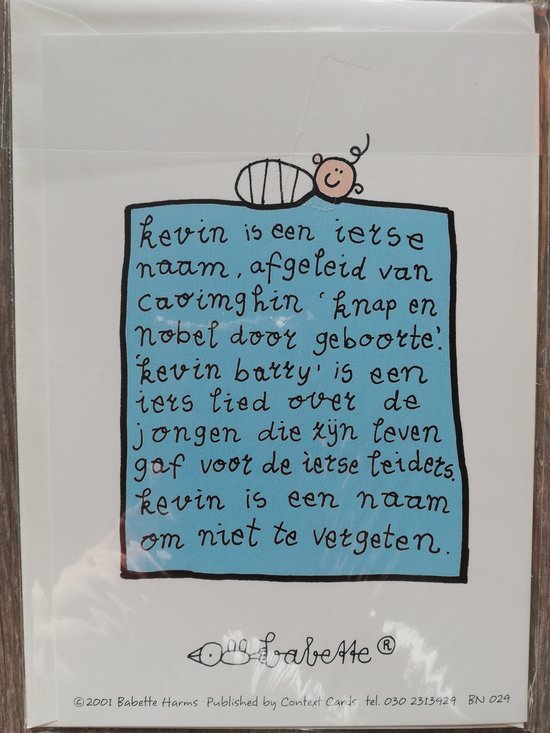 kevin is een ierse
naam, afgeleid van
caoimghin 'knap en
nobel door geboorte'.
'kevin barry' is een
iers lied over de
jongen die zijn leven
gaf voor de ierse leiders.
kevin is een naam
om niet te vergeten.
babette®
©2001 Babette Harms Published by Context Cards tel. 030 2313929 BN 029